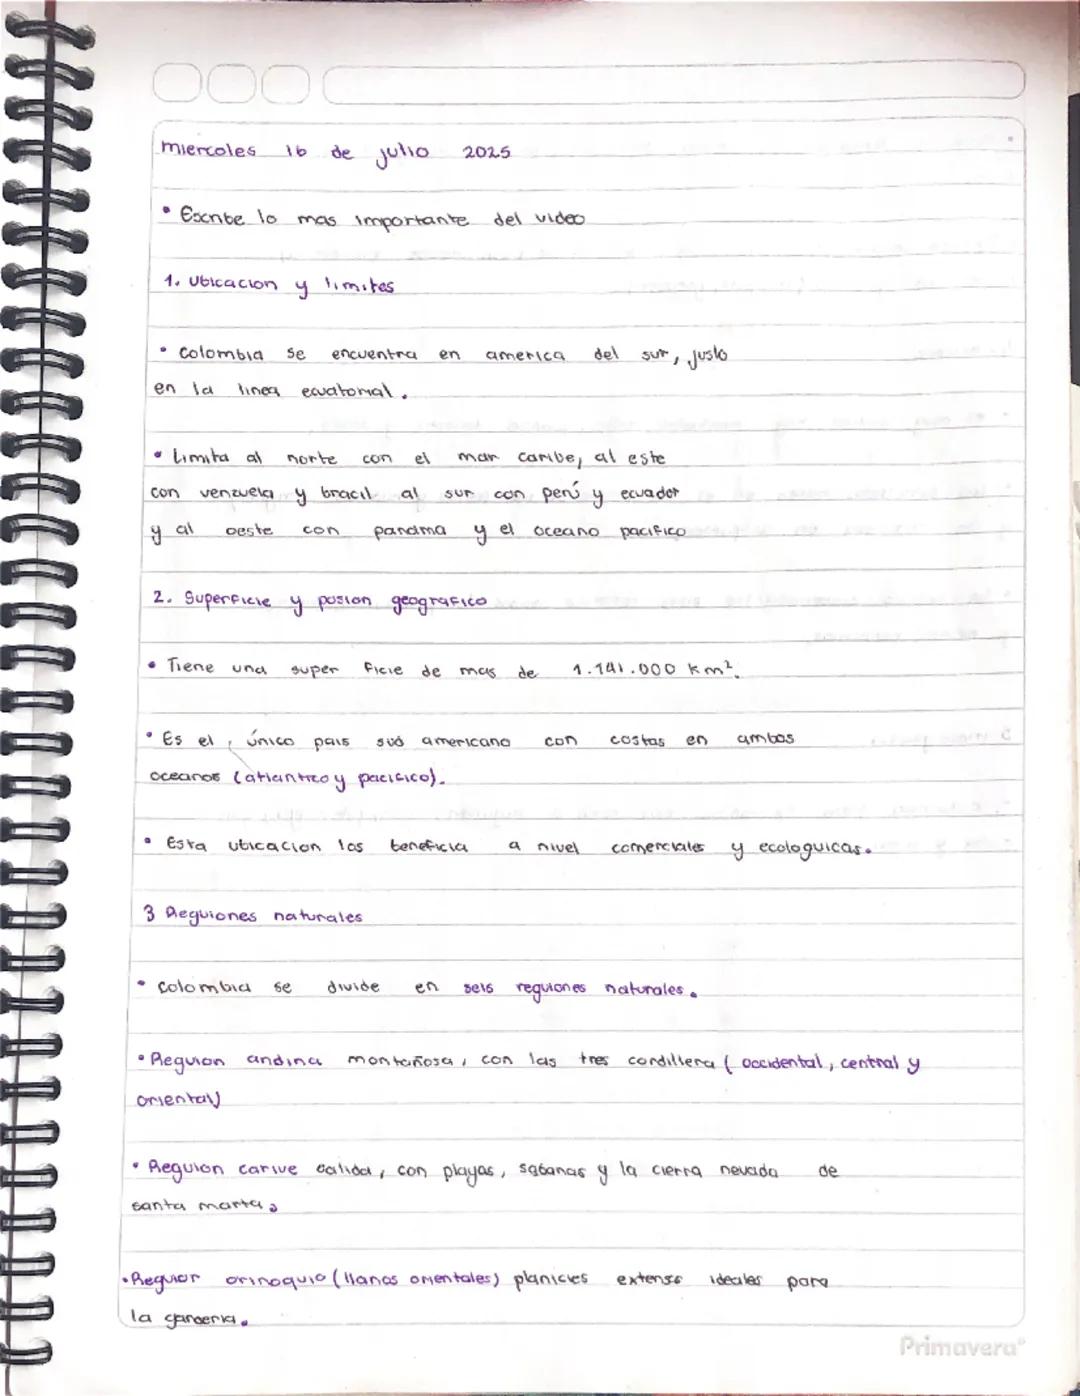 miercoles 16 de julio 2025
• Escribe lo mas importante del video
1. Ubicacion y limites
• Colombia se encuentra en america del sur, justo
en la linea ecuatorial.
• Limita al norte con el mar caribe, al este
con venzuela y bracil al sur con perú y ecuador
y al oeste con panama y el oceano pacifico
2. Superficie y posion geografico
• Tiene una super ficie de mas de 1.141.000 km².
• Es el, único pais sud americano con costas en ambos
oceanos (atlantico y pacifico).
• Esta ubicacion los beneficia a nivel comerciales y ecologuicas.
3 Reguiones naturales
• Colombia se divide en seis reguiones naturales.
• Reguion andina montañosa, con las tres cordillera (occidental, central y
oriental)
• Reguion carive calida, con playas, sabanas y la cierra nevada de
santa marta.
• Reguior orinoquio (llanos orientales) planicies extense ideales para
la ganderia.
Primavera®